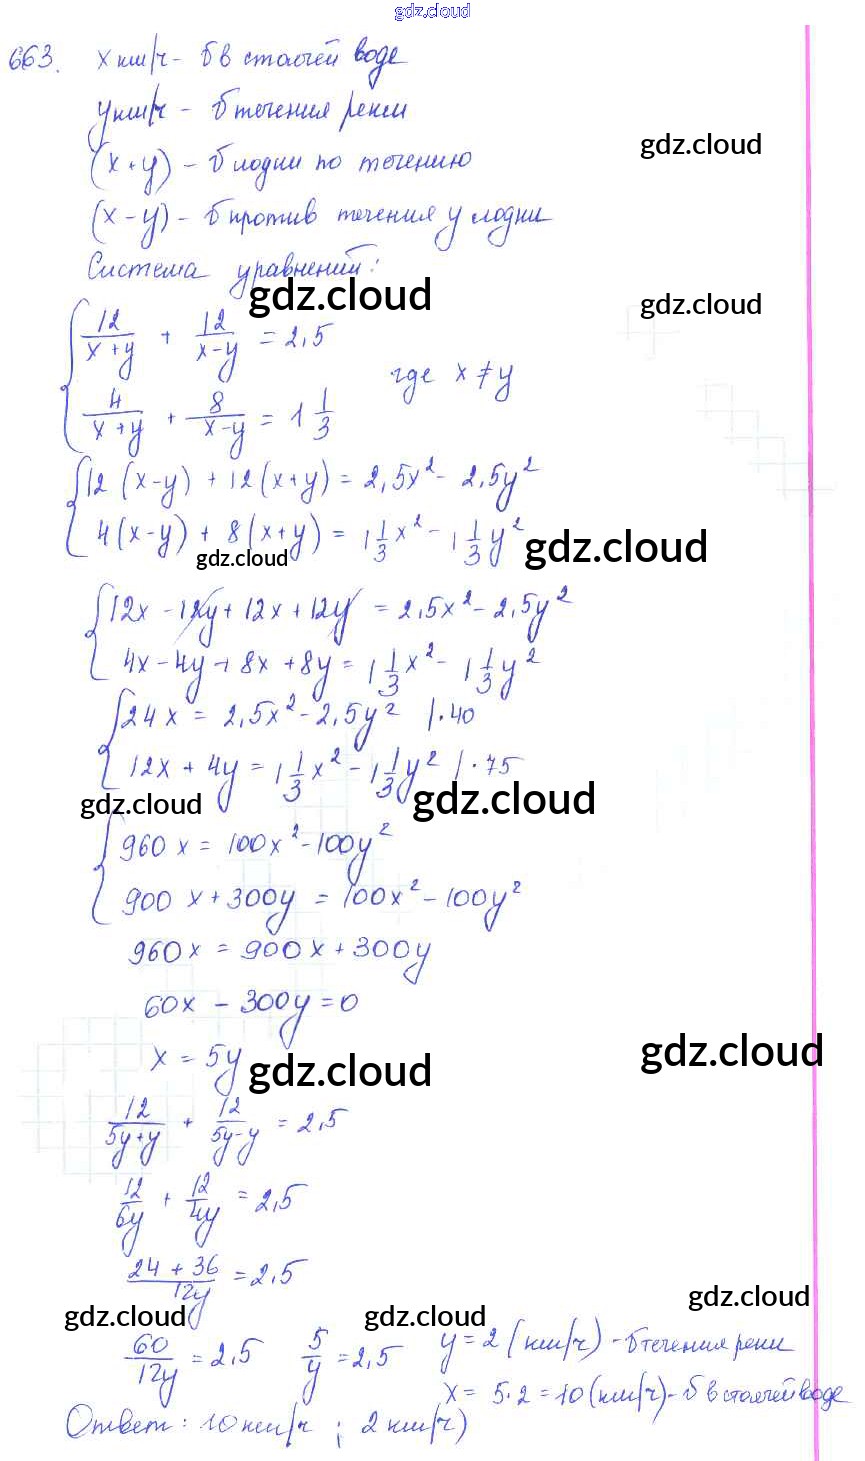 gdz.cloud
663. x км/ч - б в стоячей воде
y км/ч - б течения реки
gdz.cloud
(x + y) - б лодки по течению
(x - y) - б против течения у лодки
Система уравнений:
gdz.cloud
gdz.cloud
12/(x + y) + 12/(x - y) = 2,5
где x ≠ y
4/(x + y) + 8/(x - y) = 1 1/3
12 (x - y) + 12 (x + y) = 2,5x² - 2,5y²
4(x - y) + 8(x + y) = 1 1/3 x² - 1 1/3 y²
gdz.cloud
gdz.cloud
12x - 12y + 12x + 12y = 2,5x² - 2,5y²
4x - 4y + 8x + 8y = 1 1/3 x² - 1 1/3 y²
24x = 2,5x² - 2,5y² | · 40
12x + 4y = 1 1/3 x² - 1 1/3 y² | · 75
gdz.cloud
gdz.cloud
960x = 100x² - 100y²
900x + 300y = 100x² - 100y²
960x = 900x + 300y
60x - 300y = 0
x = 5y
gdz.cloud
gdz.cloud
12/(5y + y) + 12/(5y - y) = 2,5
12/6y + 12/4y = 2,5
(24 + 36)/12y = 2,5
gdz.cloud
gdz.cloud
gdz.cloud
60/12y = 2,5 5/y = 2,5 y = 2 (км/ч) - б течения реки
x = 5·2 = 10 (км/ч) - б в стоячей воде
Ответ: 10 км/ч ; 2 км/ч)